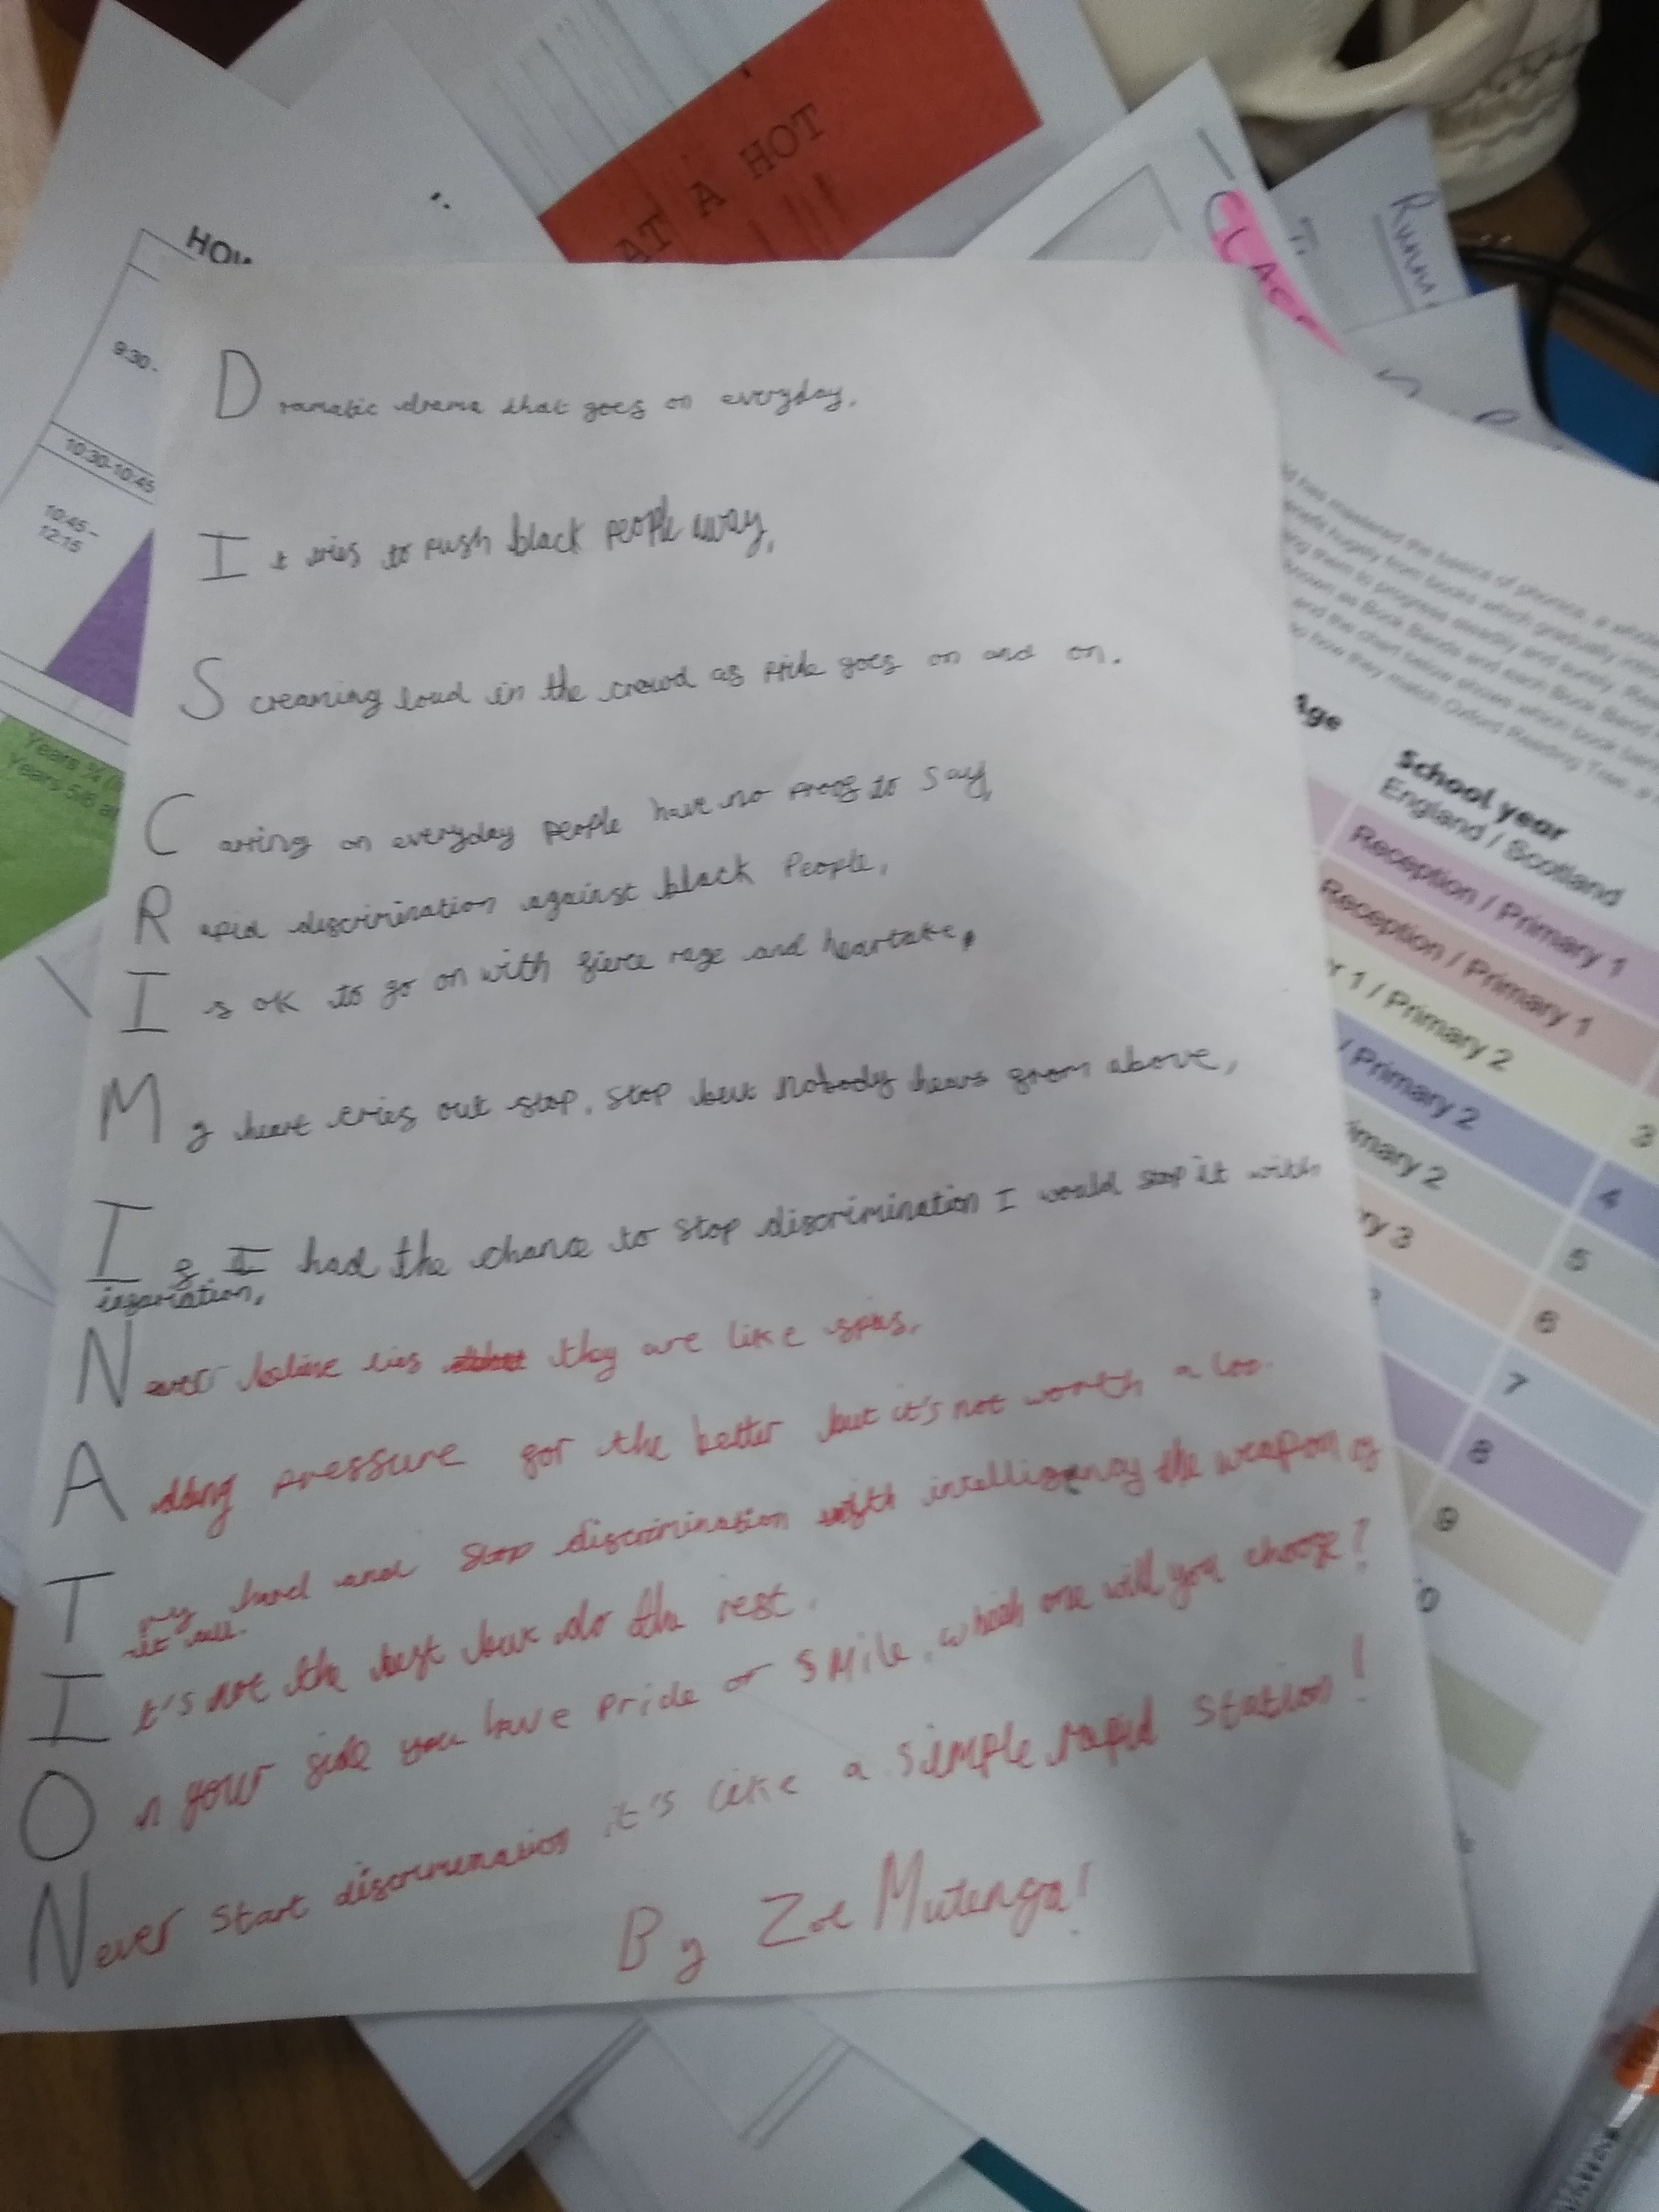 AT A HOT
HOW
CLASS
Runn
9:30-
10:30-10:45
10:45-
12:15
Dramatic drama that goes on everyday,
It tries to push black people away,
Screaming loud in the crowd as pride goes on and on.
Carring on everyday people have no proof to say,
Rapid discrimination against black People,
Is ok to go on with fierce rage and heartake,
My heart cries out stop, stop but nobody hears from above,
If I had the chance to stop discrimination I would stop it with
Never belive lies they are like
Adding pressure for the better but it's not worth a
Try hard and stop discrimination with intelligency the weapon of
it all.
It's not the best but do the rest.
On your side you have pride or smile, which one will you choose?
Never Start discrimination it's like a simple rapid station!
By Zoe Mutenga!
Age
School year
England / Scotland
Reception / Primary 1
Reception / Primary 1
r 1 / Primary 2
/ Primary 2
imary 2
ry 3
3
4
5
6
7
8
9